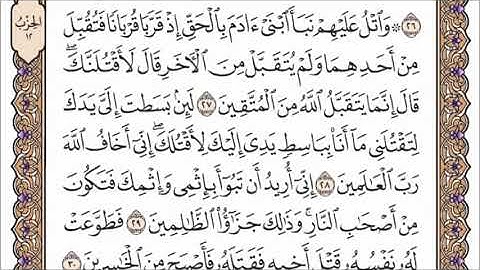 الحزب
١٢
۞ وَاتْلُ عَلَيْهِمْ نَبَأَ ابْنَيْ ءَادَمَ بِالْحَقِّ إِذْ قَرَّبَا قُرْبَانًا فَتُقُبِّلَ
مِنْ أَحَدِهِمَا وَلَمْ يُتَقَبَّلْ مِنَ الْآخَرِ قَالَ لَأَقْتُلَنَّكَ ۖ
قَالَ إِنَّمَا يَتَقَبَّلُ اللَّهُ مِنَ الْمُتَّقِينَ ٢٧ لَئِنْ بَسَطتَ إِلَيَّ يَدَكَ
لِتَقْتُلَنِي مَا أَنَا۠ بِبَاسِطٍ يَدِيَ إِلَيْكَ لِأَقْتُلَكَ ۖ إِنِّي أَخَافُ اللَّهَ
رَبَّ الْعَالَمِينَ ٢٨ إِنِّي أُرِيدُ أَن تَبُوأَ بِإِثْمِي وَإِثْمِكَ فَتَكُونَ
مِنْ أَصْحَابِ النَّارِ ۚ وَذَٰلِكَ جَزَٰٓؤُا۟ الظَّالِمِينَ ٢٩ فَطَوَّعَتْ
لَهُۥ نَفْسُهُۥ قَتْلَ أَخِيهِ فَقَتَلَهُۥ فَأَصْبَحَ مِنَ الْخَاسِرِينَ ٣٠